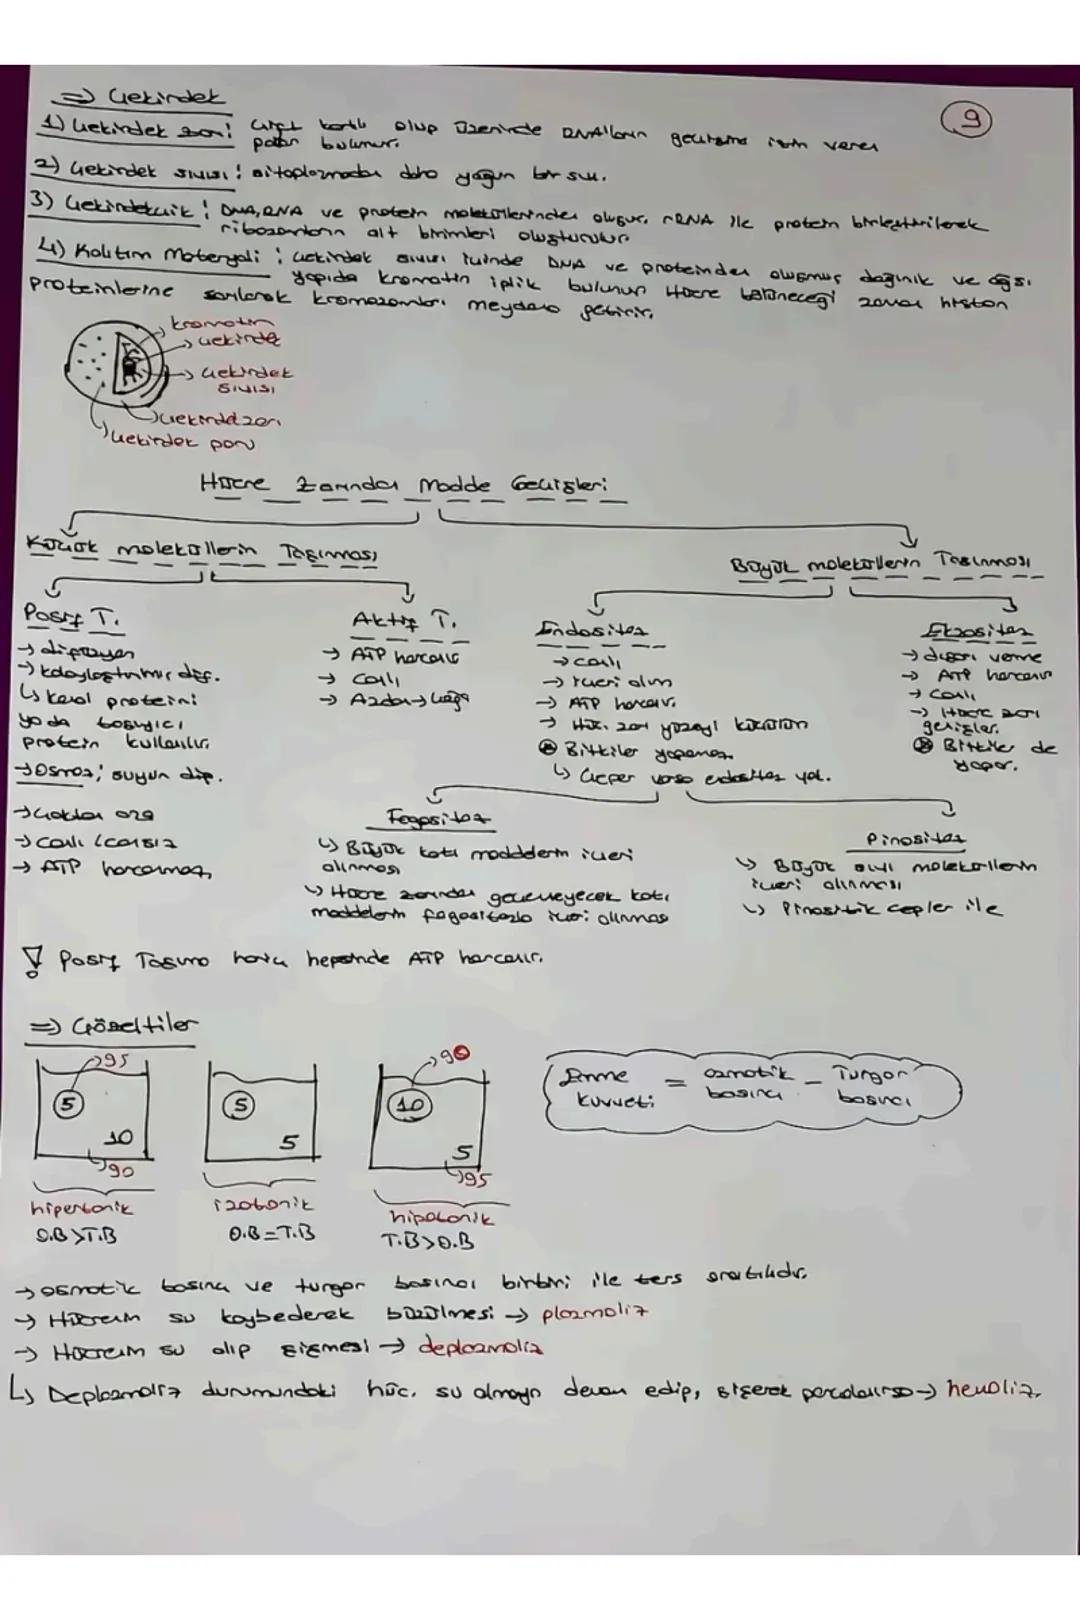 ⇒ Çekirdek
9
1) Çekirdek zarı: Çift katlı olup üzerinde RNA'ların geçişine izin veren
porlar bulunur.
2) Çekirdek sıvısı: sitoplazmadan daha yoğun bir sıvı.
3) Çekirdekçik: DNA, RNA ve protein moleküllerinden oluşur. rRNA ile protein birleştirilerek
ribozomların alt birimleri oluşturulur.
4) Kalıtım Materyali: Çekirdek sıvısı içinde DNA ve proteinden oluşmuş dağınık ve ağsı
yapıda kromatin iplik bulunur. Hücre bölüneceği zaman histon
proteinlerine sarılarak kromozomları meydana getirir.
kromatin
çekirdek
çekirdek
sıvısı
çekirdek zarı
çekirdek poru
Hücre Zarından Madde Geçişleri
Küçük moleküllerin Taşınması
Büyük moleküllerin Taşınması
Pasif T.
→ difüzyon
→ kolaylaştırılmış dif.
↳ kanal proteini
ya da taşıyıcı
protein kullanılır.
→ Osmoz; suyun dif.
→ Çoktan aza
→ canlı / cansız
→ ATP harcanmaz
Aktif T.
→ ATP harcanır
→ canlı
→ Azdan → çoğa
Endositoz
→ canlı
→ içeri alım
→ ATP harcanır.
→ Hüc. zarı yüzeyi küçülür
⊗ Bitkiler yapamaz
↳ Çeper varsa endositoz yok.
Ekzositoz
→ dışarı verme
→ ATP harcanır
→ canlı
→ Hücre zarı
genişler.
⊗ Bitkiler de
yapar.
Fagositoz
↳ Büyük katı maddelerin içeri
alınması
↳ Hücre zarından geçemeyecek katı
maddelerin fagositozla içeri alınması
Pinositoz
↳ Büyük sıvı moleküllerin
içeri alınması
↳ Pinositik cepler ile
! Pasif Taşıma hariç hepsinde ATP harcanır.
⇒ Çözeltiler
95
5
10
90
hipertonik
O.B>T.B
5
5
izotonik
O.B=T.B
90
10
5
95
hipotonik
T.B>O.B
Emme kuvveti = osmotik basıncı - Turgor basıncı
→ osmotik basınç ve turgor basıncı birbiri ile ters orantılıdır.
→ Hücrenin su kaybederek büzülmesi → plazmoliz
→ Hücrenin su alıp şişmesi → deplazmoliz
↳ Deplazmoliz durumundaki hüc. su almaya devam edip, şişerek parçalanırsa → hemoliz.